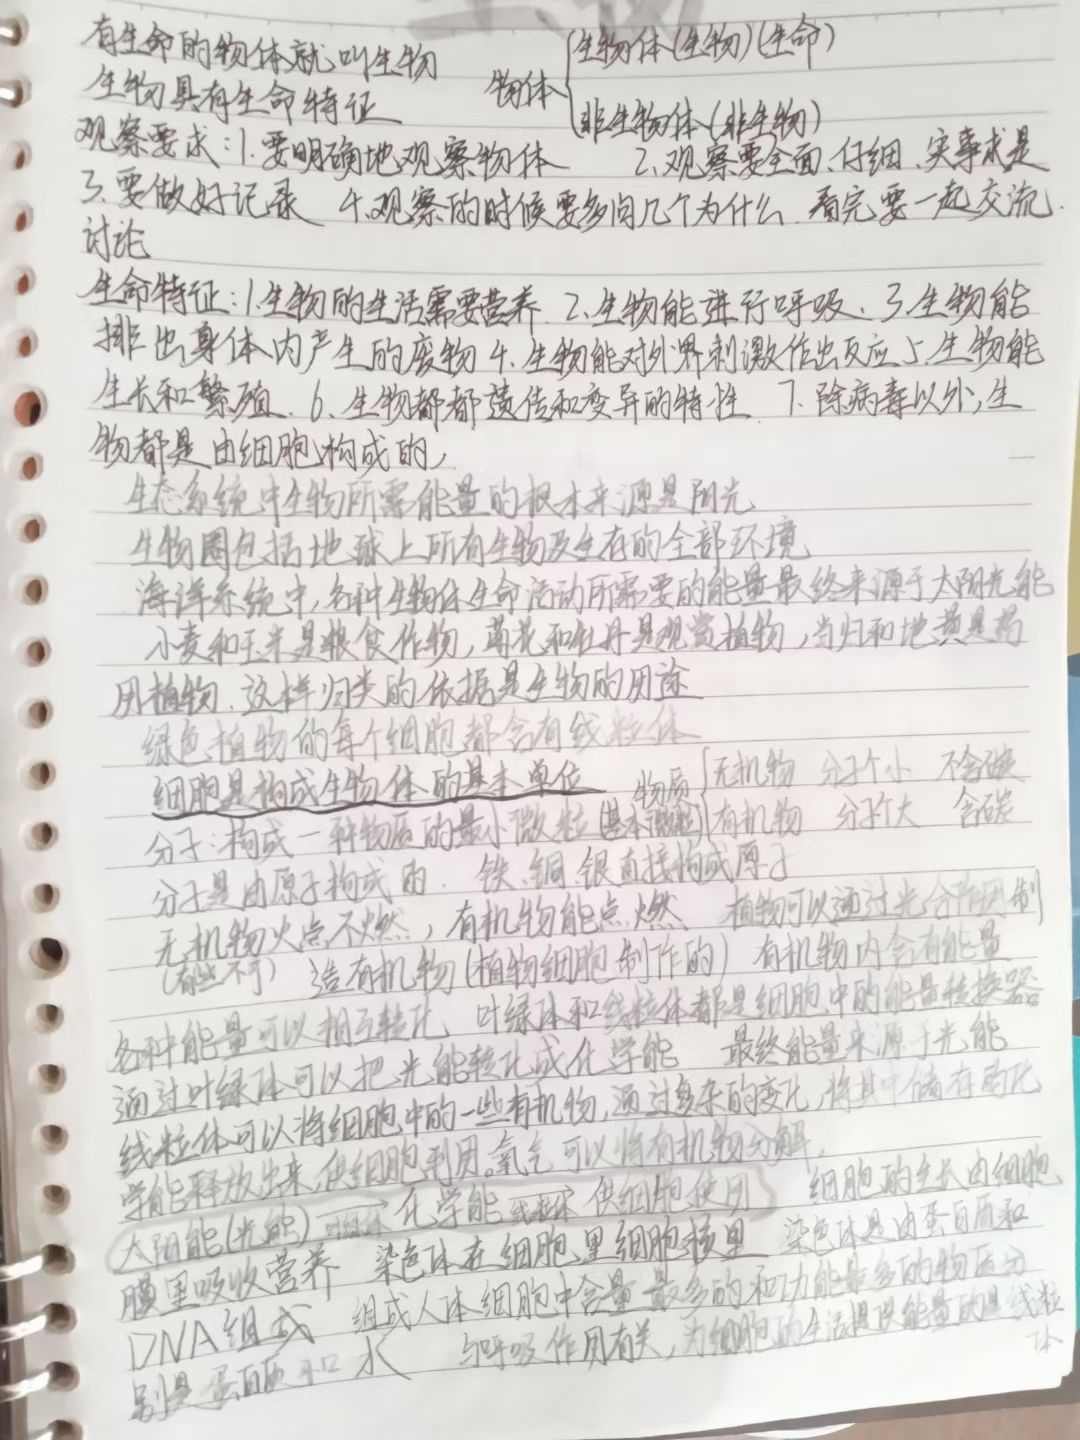 生物
有生命的物体就叫生物
物体{生物体(生物)(生命)
生物具有生命特征
非生物体(非生物)
观察要求:1.要明确地观察物体 2.观察要全面、仔细、实事求是
3.要做好记录 4.观察的时候要多问几个为什么、看完要一起交流.
讨论
生命特征:1.生物的生活需要营养 2.生物能进行呼吸、3.生物能
排出身体内产生的废物 4.生物能对外界刺激作出反应 5.生物能
生长和繁殖、6.生物都都遗传和变异的特性 7.除病毒以外,生
物都是由细胞构成的,
生态系统中生物所需能量的根本来源是阳光
生物圈包括地球上所有生物及生存的全部环境
海洋系统中,各种生物体生命活动所需要的能量最终来源于太阳光能
小麦和玉米是粮食作物,菊花和牡丹是观赏植物,当归和地黄是药
用植物.这样归类的依据是生物的用途
绿色植物的每个细胞都含有线粒体
细胞是构成生物体的基本单位 物质{无机物 分子个小 不含碳
分子:构成一种物质的最小微粒(基本微粒) 有机物 分子个大 含碳
分子是由原子构成的. 铁、铜、银直接构成原子
无机物火点不燃,有机物能点燃 植物可以通过光合作用制
(有些不可) 造有机物(植物细胞制作的) 有机物内含有能量
各种能量可以相互转化 叶绿体和线粒体都是细胞中的能量转换器
通过叶绿体可以把光能转化成化学能 最终能量来源于光能
线粒体可以将细胞中的一些有机物,通过复杂的变化,将其中储存的化
学能释放出来,供细胞利用。氧气可以将有机物分解,
太阳能(光能) 叶绿体→ 化学能 线粒体→ 供细胞使用 细胞的生长由细胞
膜里吸收营养 染色体在细胞里细胞核里 染色体是由蛋白质和
DNA组成 组成人体细胞中含量最多的和功能最多的物质分
别是蛋白质和水 与呼吸作用有关,为细胞的生活提供能量的是线粒
体